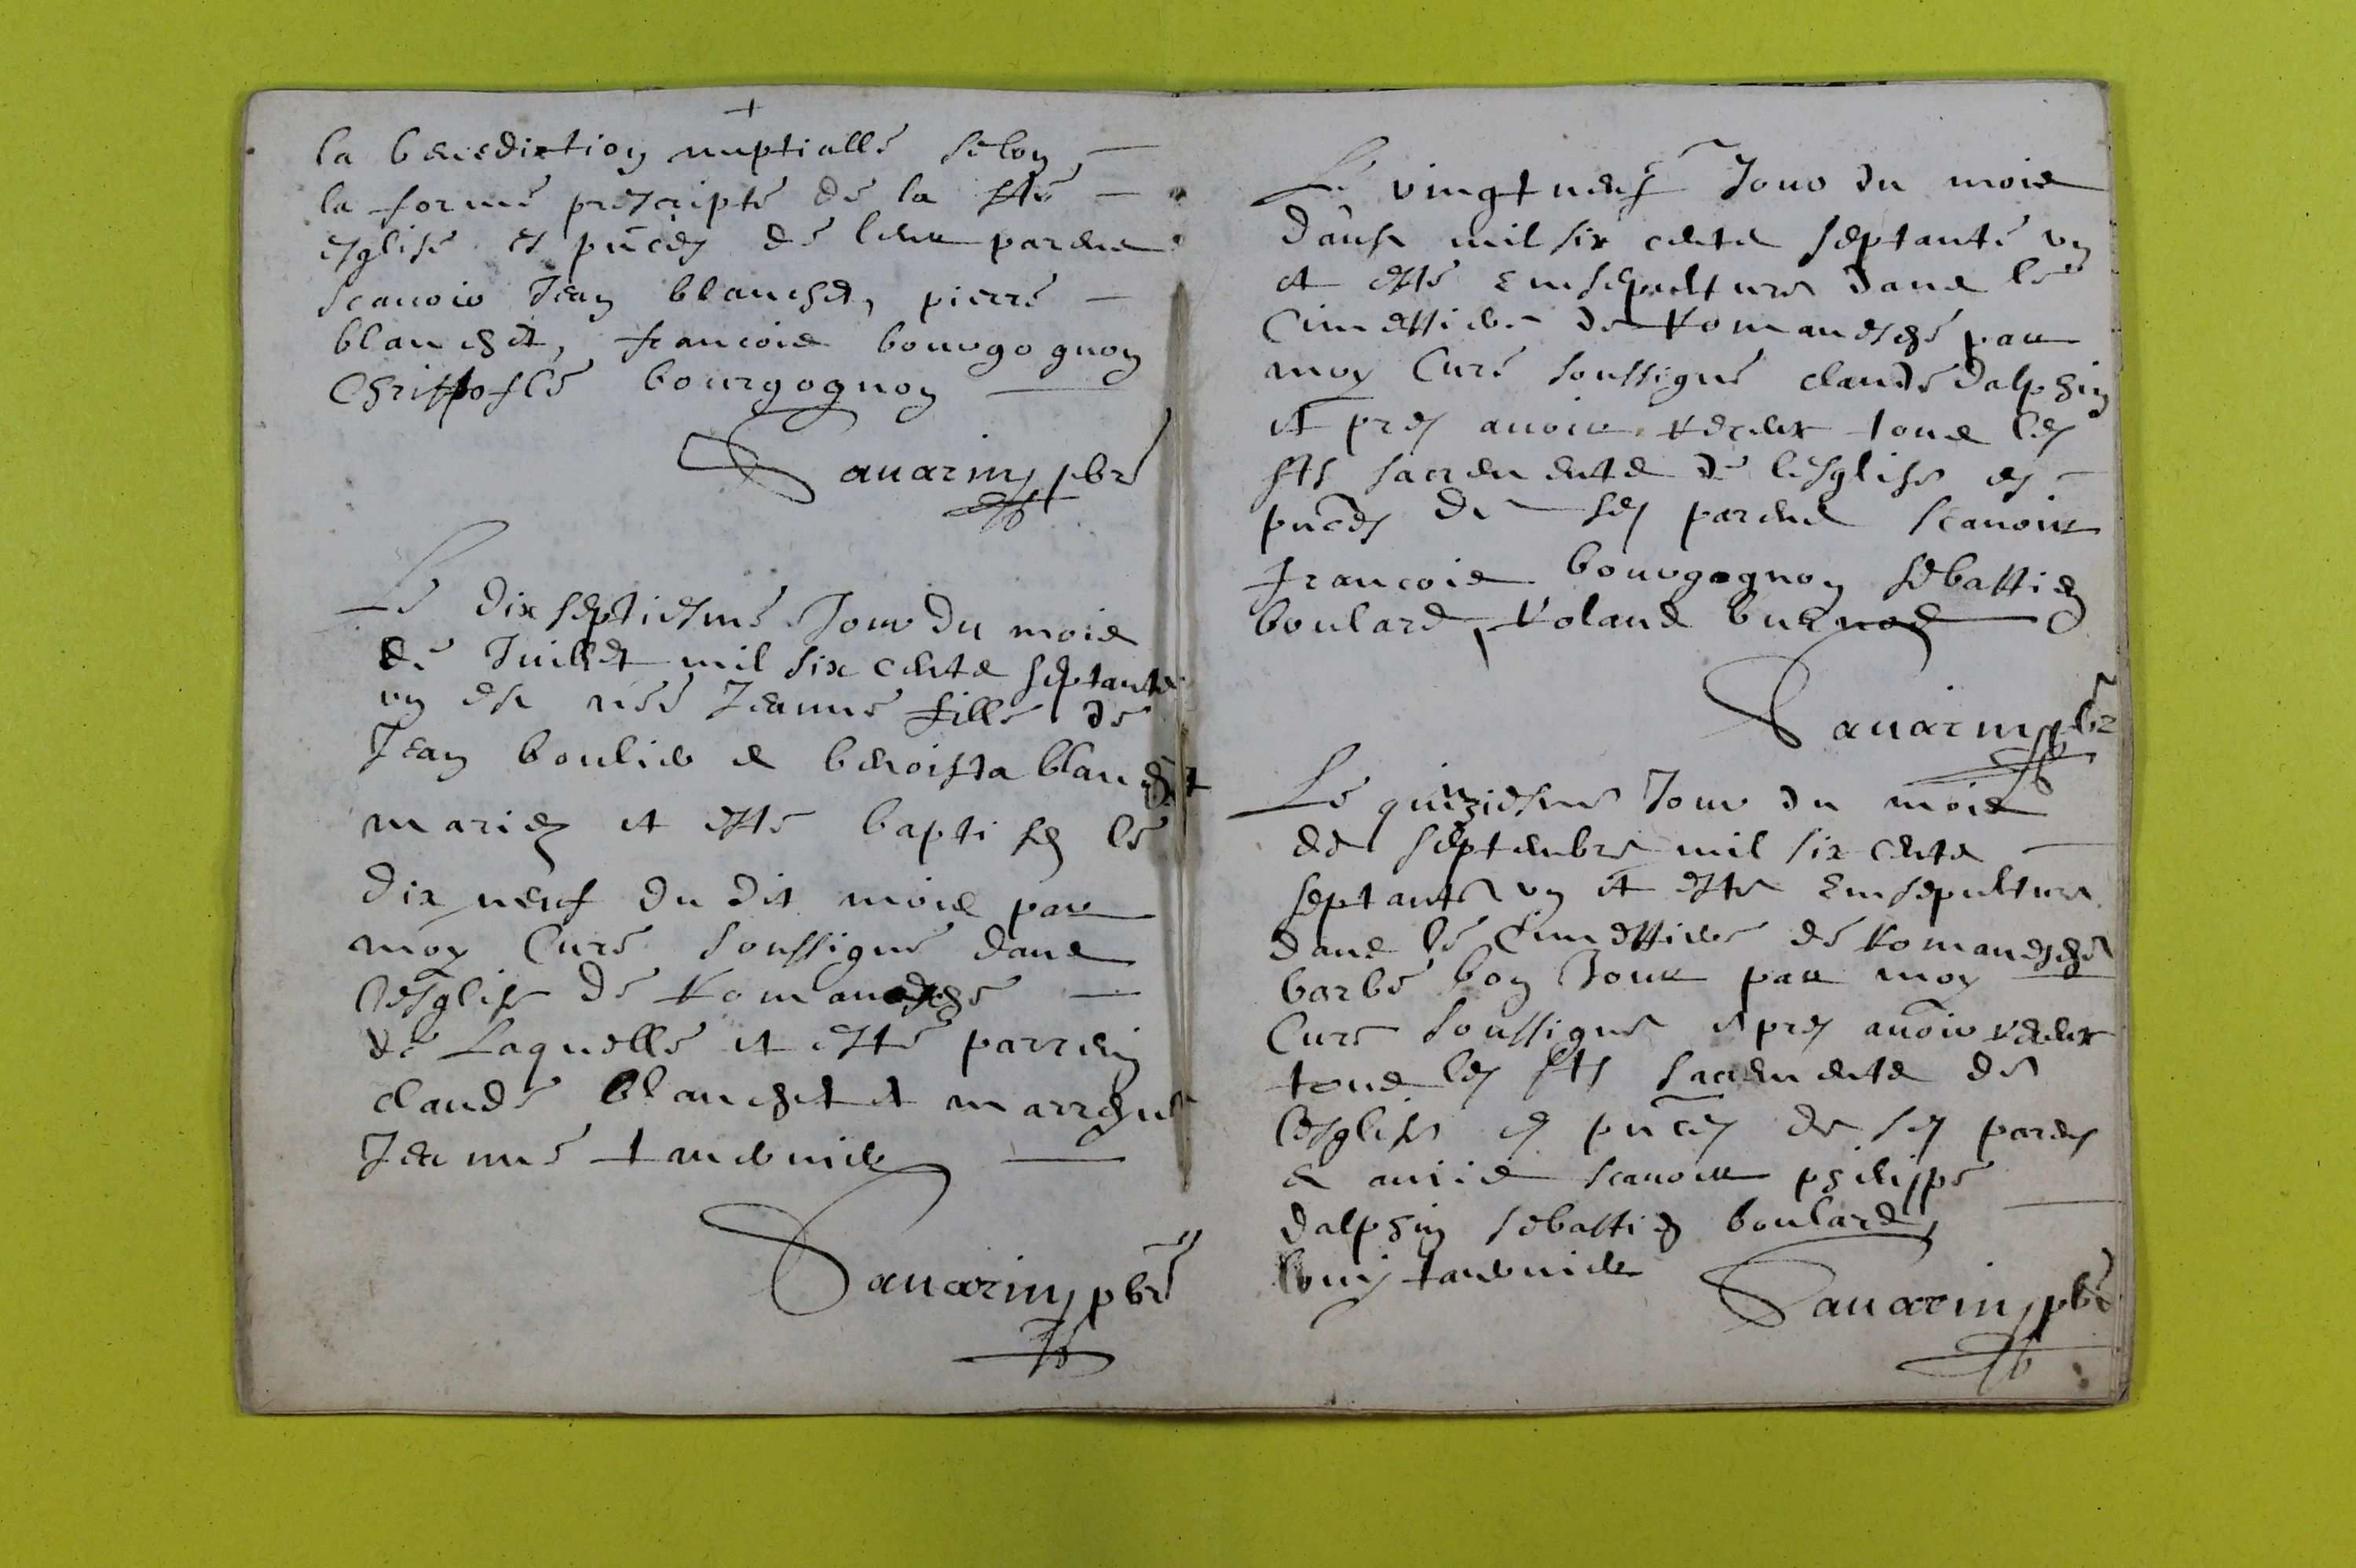 la benediction nuptialle selon
la forme prescripte de la Ste
esglise et pñces de leur parens
scauoir Jean blanchet, pierre
blanchet, francois bourgognon
Christofle bourgognon
Sauarin, pbr̃e
Le dixseptiesme Jour du mois
de Juillet mil six cents septante
un est née Jeanne fille de
Jean boulier et benoista blanchet
mariez et esté baptisez le
dix neuf du dit mois par
moy Curé soussigné dans
l'esglise de Romanesche
de Laquelle et esté parrein
claude blanchet et marreine
Jeanne
Sauarin, pbr̃e
Le vingt neuf Jour du mois
d'aust mil six cents septante un
et esté Ensepulture dans le
Cimettiere de Romanesche par
moy Curé soussigné claude dalphin
et pres auoir receux tous les
Sts sacrements de l'esglise es
pñces de ses parens scauoir
francois bourgognon sebastien
boulard, Roland
Sauarin, pbr̃
Le quinziesme Jour du mois
de septembre mil six cents
septante un et este Ensepulture
dans le Cimettiere de Romanesche
barbe bon Jour par moy
Curé soussigné et pres auoir receux
tous les Sts sacrements de
l'esglise es pñces de ses pares
et amis scauoir philippe
dalphin sebastien boulard,
louis
Sauarin, pbr̃e